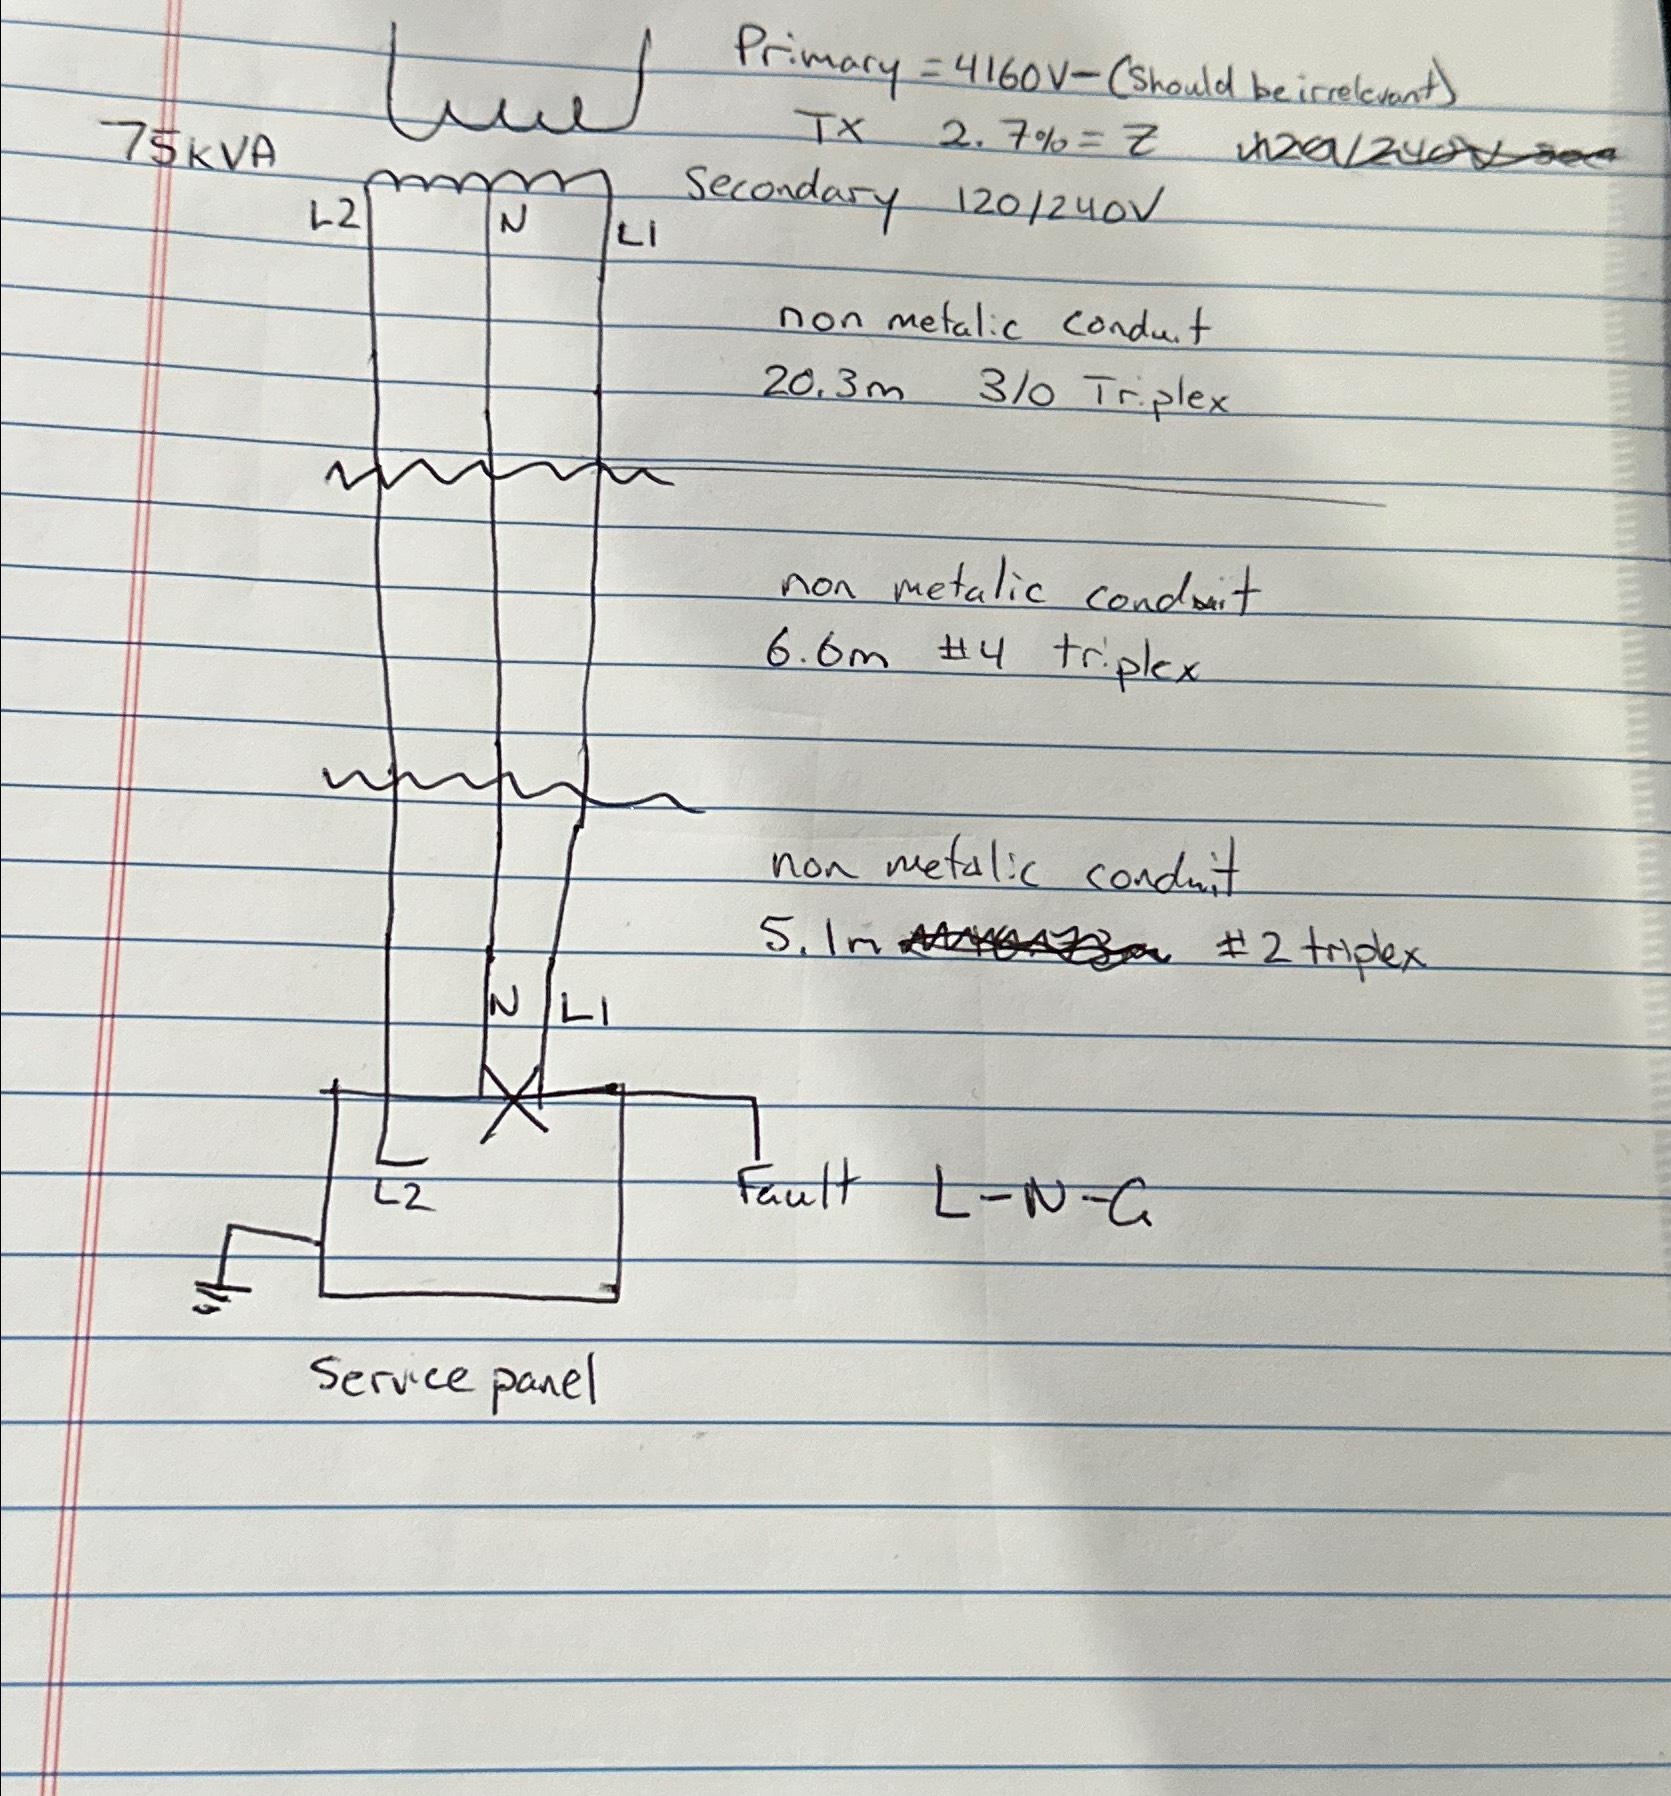 Primary = 4160V - (Should be irrelevant)
75KVA
TX 2.7% = Z
Secondary 120/240V
L2 N L1
non metalic conduit
20.3m 3/0 Triplex
non metalic conduit
6.6m #4 triplex
non metalic conduit
5.1m #2 triplex
N L1
L2
Fault L-N-G
Service panel